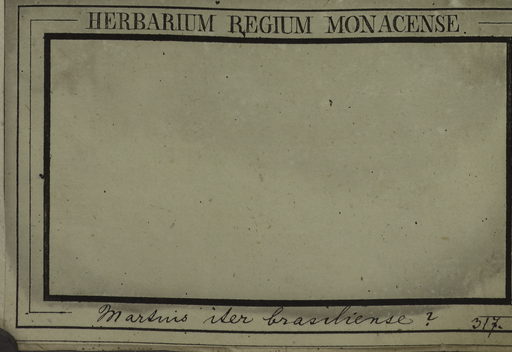 HERBARIUM REGIUM MONACENSE.
Martius iter brasiliense ? 317.